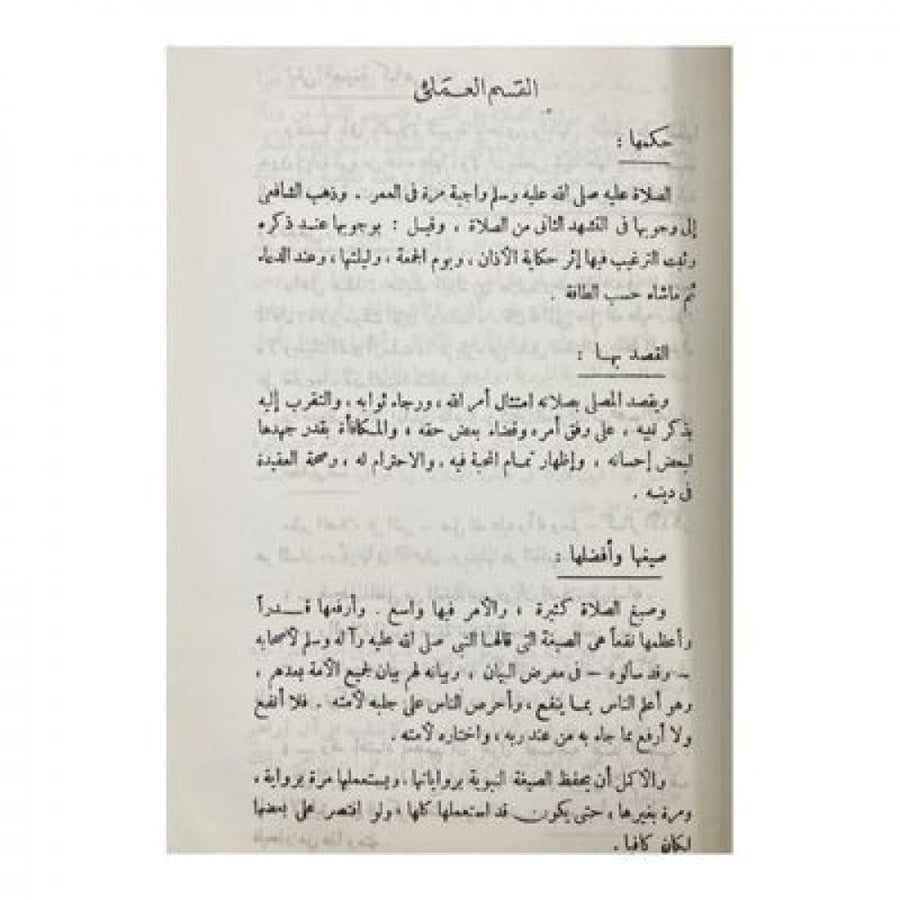 القسم العملى
حكمها :
الصلاة عليه صلى الله عليه وسلم واجبة مرة فى العمر . وذهب الشافعى
إلى وجوبها فى التشهد الثانى من الصلاة . وقيل : بوجوبها عند ذكره
وثبت الترغيب فيها إثر حكاية الأذان ، ويوم الجمعة ، وليلتها ، وعند الدعاء
ثم ماشاء حسب الطاقة .
القصد بها :
ويقصد المصلى بصلاته امتثال أمر الله ، ورجاء ثوابه ، والتقرب إليه
بذكر نبيه ، على وفق أمره وقضاء بعض حقه ، والمكافأة بقدر جهدها
لبعض إحسانه ، وإظهار تمام المحبة فيه . والاحترام له ، وصحة العقيدة
فى دينه .
صيغها وأفضلها :
وصيغ الصلاة كثيرة ، والأمر فيها واسع . وأرفعها قدراً
وأعظمها نفعاً هى الصيغة التى قالها النبى صلى الله عليه وآله وسلم لأصحابه
– وقد سألوه – فى معرض البيان ، وبيانه لهم بيان لجميع الأمة بعدهم ،
وهو أعلم الناس بما ينفع ، وأحرص الناس على جلبه لأمته . فلا أنفع
ولا أرفع مما جاء به من عند ربه ، واختاره لأمته .
والأكمل أن يحفظ الصيغة النبوية برواياتها ، ويستعملها مرة برواية ،
ومرة بغيرها ، حتى يكون قد استعملها كلها ، ولو اقتصر على بعضها
لكان كافيا .